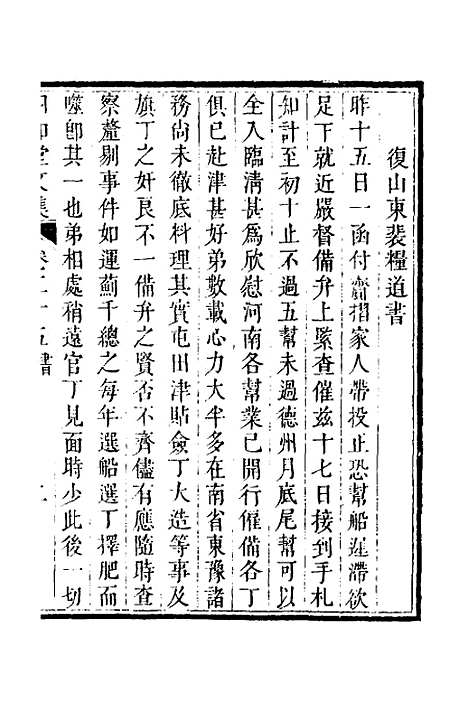 復山東裴糧道書
昨十五日一函付齎摺家人帶投止恐幫船遲滯欲
足下就近嚴督備弁上緊查催茲十七日接到手札
知計至初十止不過五幫未過德州月底尾幫可以
全入臨淸甚爲欣慰河南各幫業已開行僱備各丁
俱已赴津甚好弟數載心力大半多在南省東豫諸
務尚未徹底料理其實屯田津貼僉丁大造等事及
旗丁之奸良不一備弁之賢否不齊儘有應隨時查
察釐剔事件如運薊千總之每年選船選丁擇肥而
噬卽其一也弟相處稍遠官丁見面時少此後一切
堂文集 卷二十五書